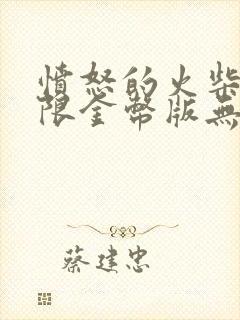 憤怒的火柴
限金幣版無
蔡建忠